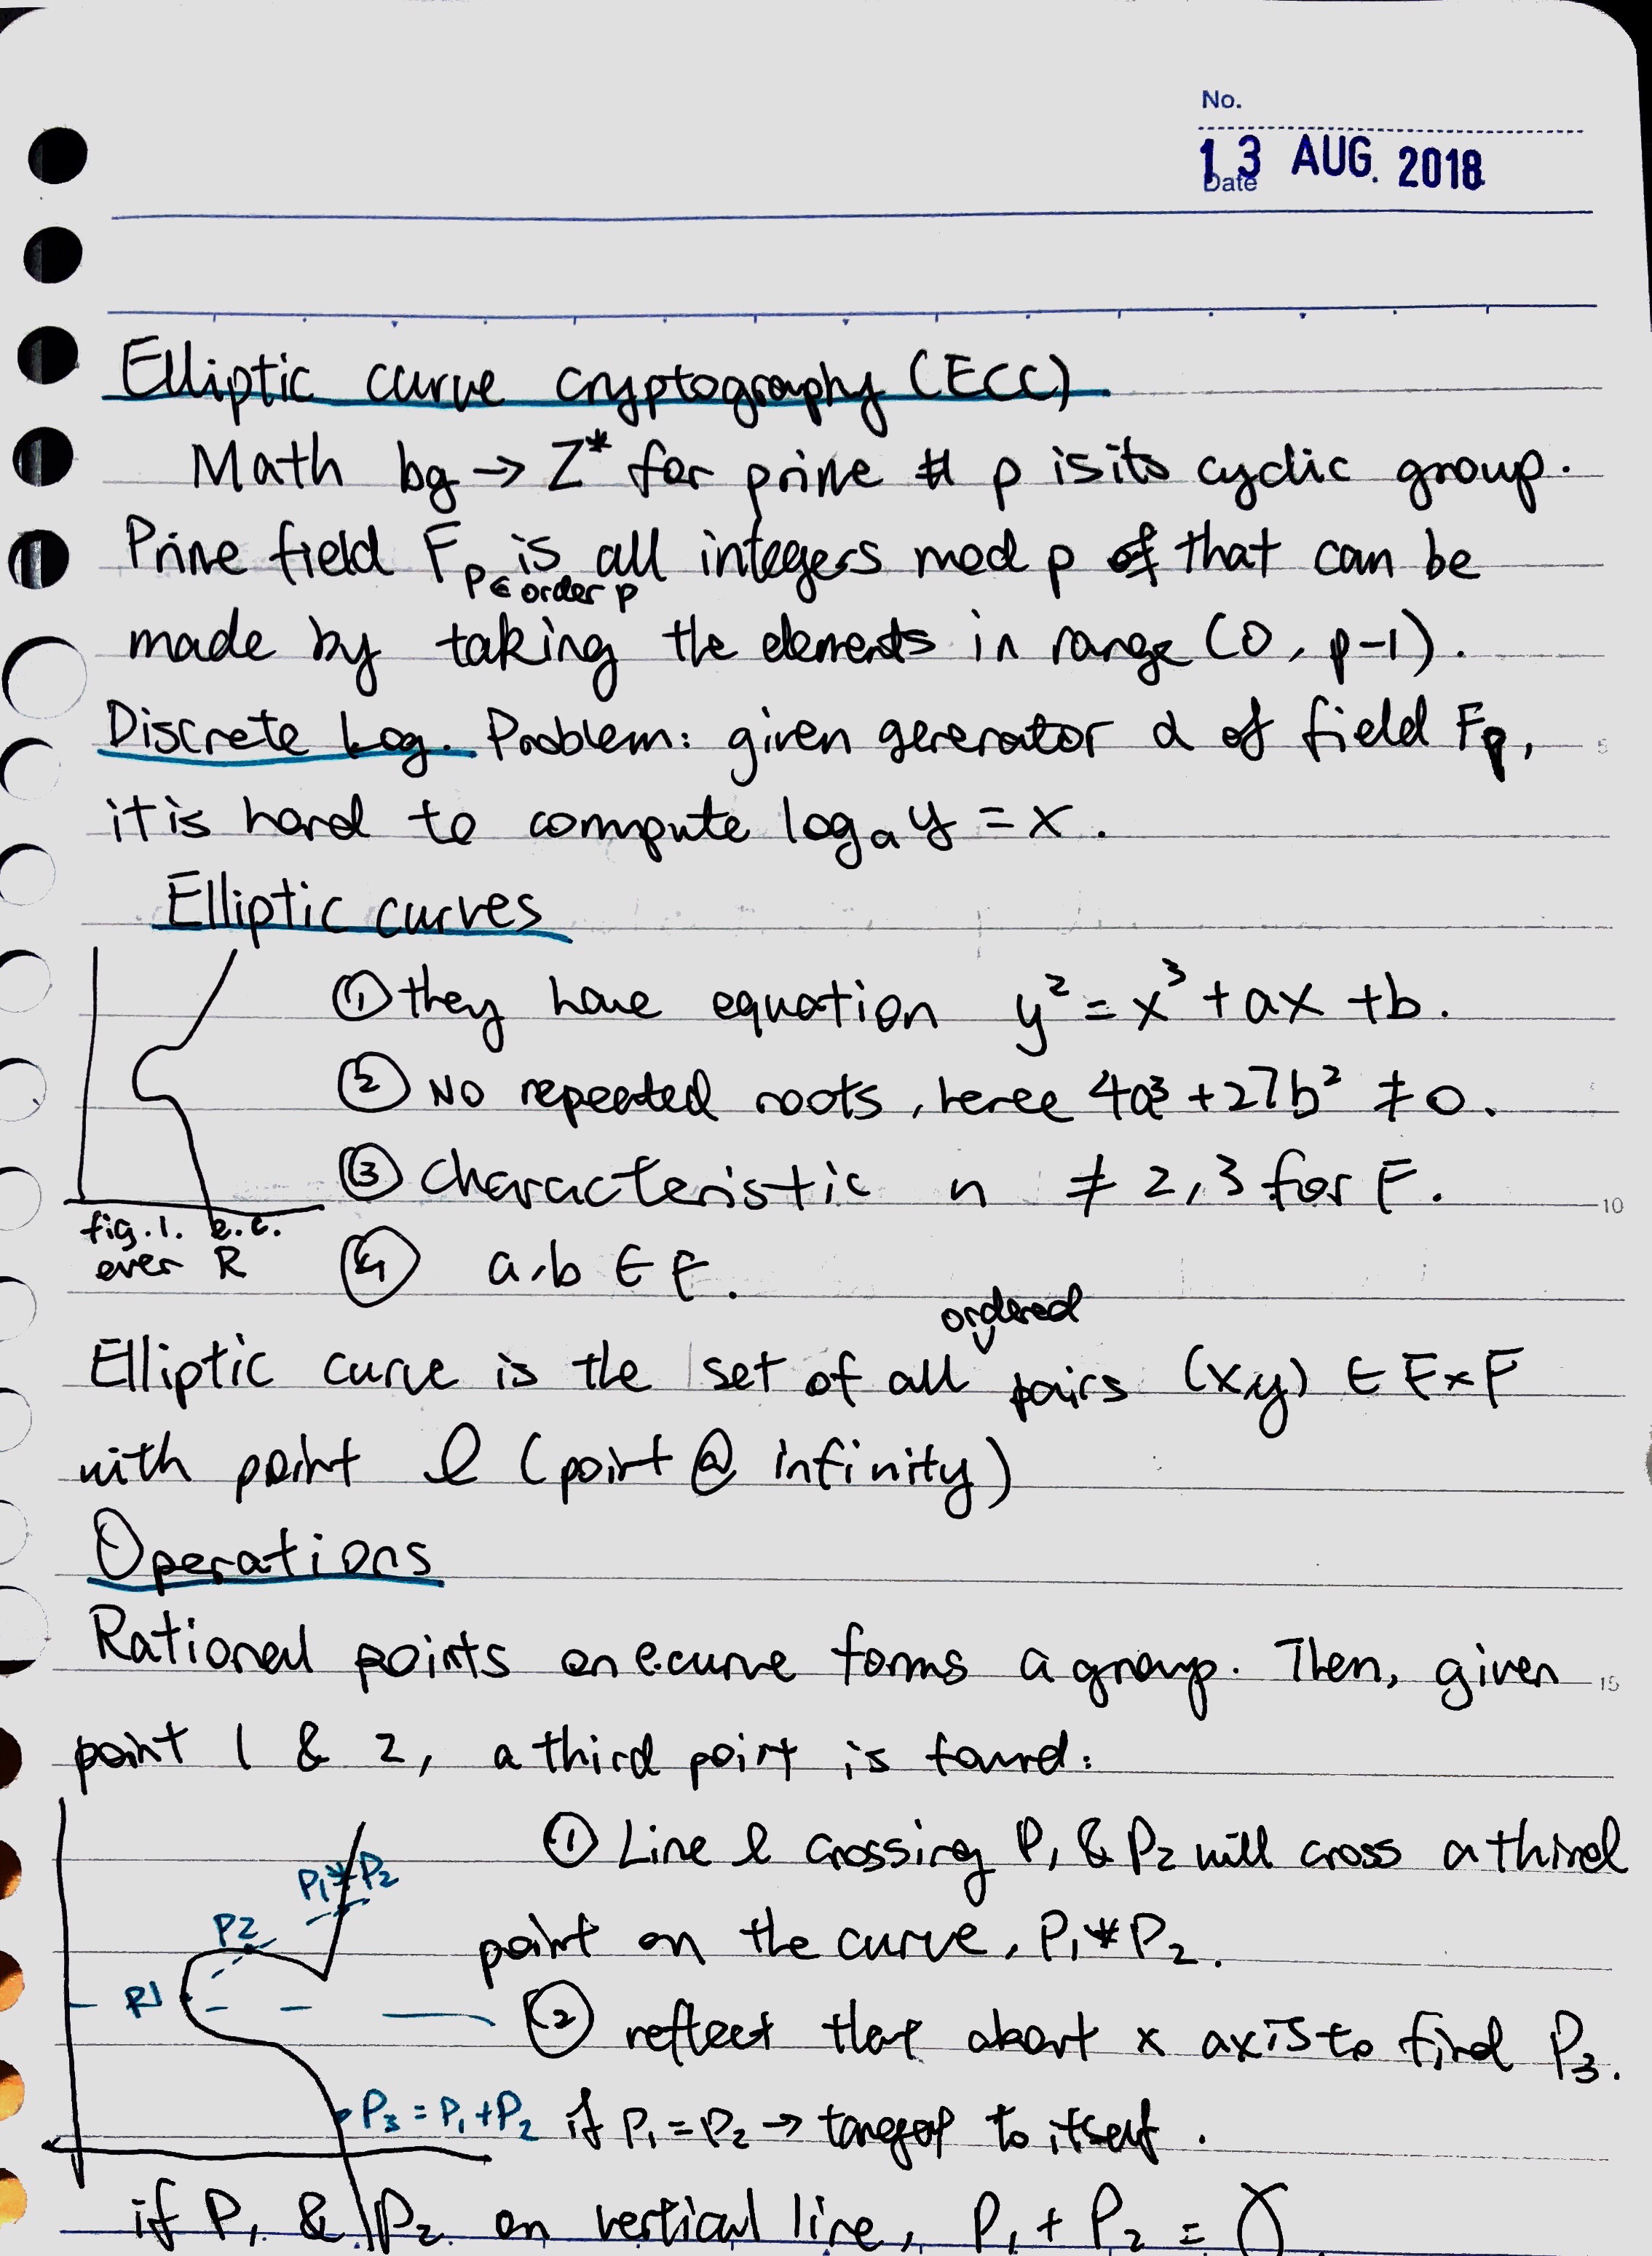 No.
Date
13 AUG. 2018
Elliptic curve cryptography (ECC)
Math bg → Z* for prime # p is its cyclic group.
Prime field Fp is all integers mod p that can be
p ∈ order p
made by taking the elements in range (0, p-1).
Discrete Log. Problem: given generator α of field Fp,
5
it is hard to compute logₐ y = x.
Elliptic curves
① they have equation y² = x³ + ax + b.
② No repeated roots, hence 4a³ + 27b² ≠ 0.
③ Characteristic n ≠ 2, 3 for F.
10
fig. 1. e.c.
over R
④ a, b ∈ F.
ordered
Elliptic curve is the set of all pairs (x,y) ∈ F×F
with point l (point @ infinity)
Operations
Rational points on e.curve forms a group. Then, given
15
point 1 & 2, a third point is found:
① Line l crossing P₁ & P₂ will cross a third
P₁*P₂
P2
point on the curve, P₁*P₂.
P1
② reflect that about x axis to find P₃.
P₃ = P₁ + P₂
if P₁ = P₂ → tangent to itself.
if P₁ & P₂ on vertical line, P₁ + P₂ =